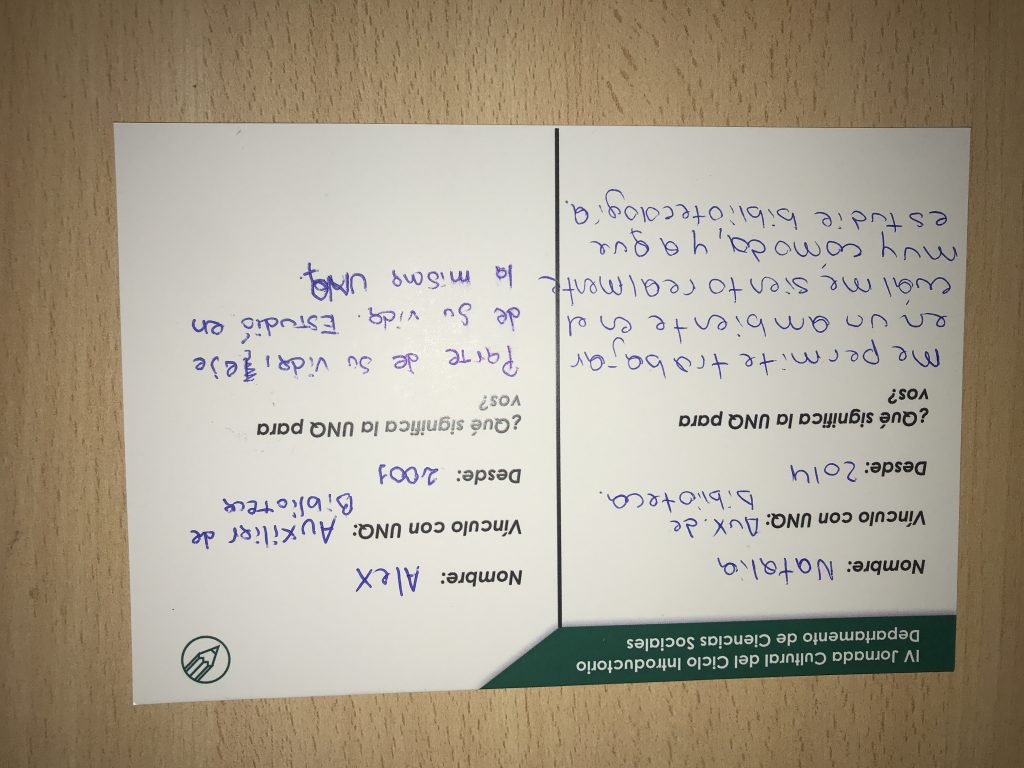 IV Jornada Cultural del Ciclo Introductorio
Departamento de Ciencias Sociales
Nombre: Natalia
Vínculo con UNQ: Aux. de
biblioteca.
Desde: 2014
¿Qué significa la UNQ para
vos?
Me permite trabajar
en un ambiente en el
cuál me siento realmente
muy comoda, ya que
estudie bibliotecología.
Nombre: Alex
Vínculo con UNQ: Auxiliar de
Biblioteca
Desde: 2001
¿Qué significa la UNQ para
vos?
Parte de su vida, eje
de su vida. Estudió en
la misma UNQ.